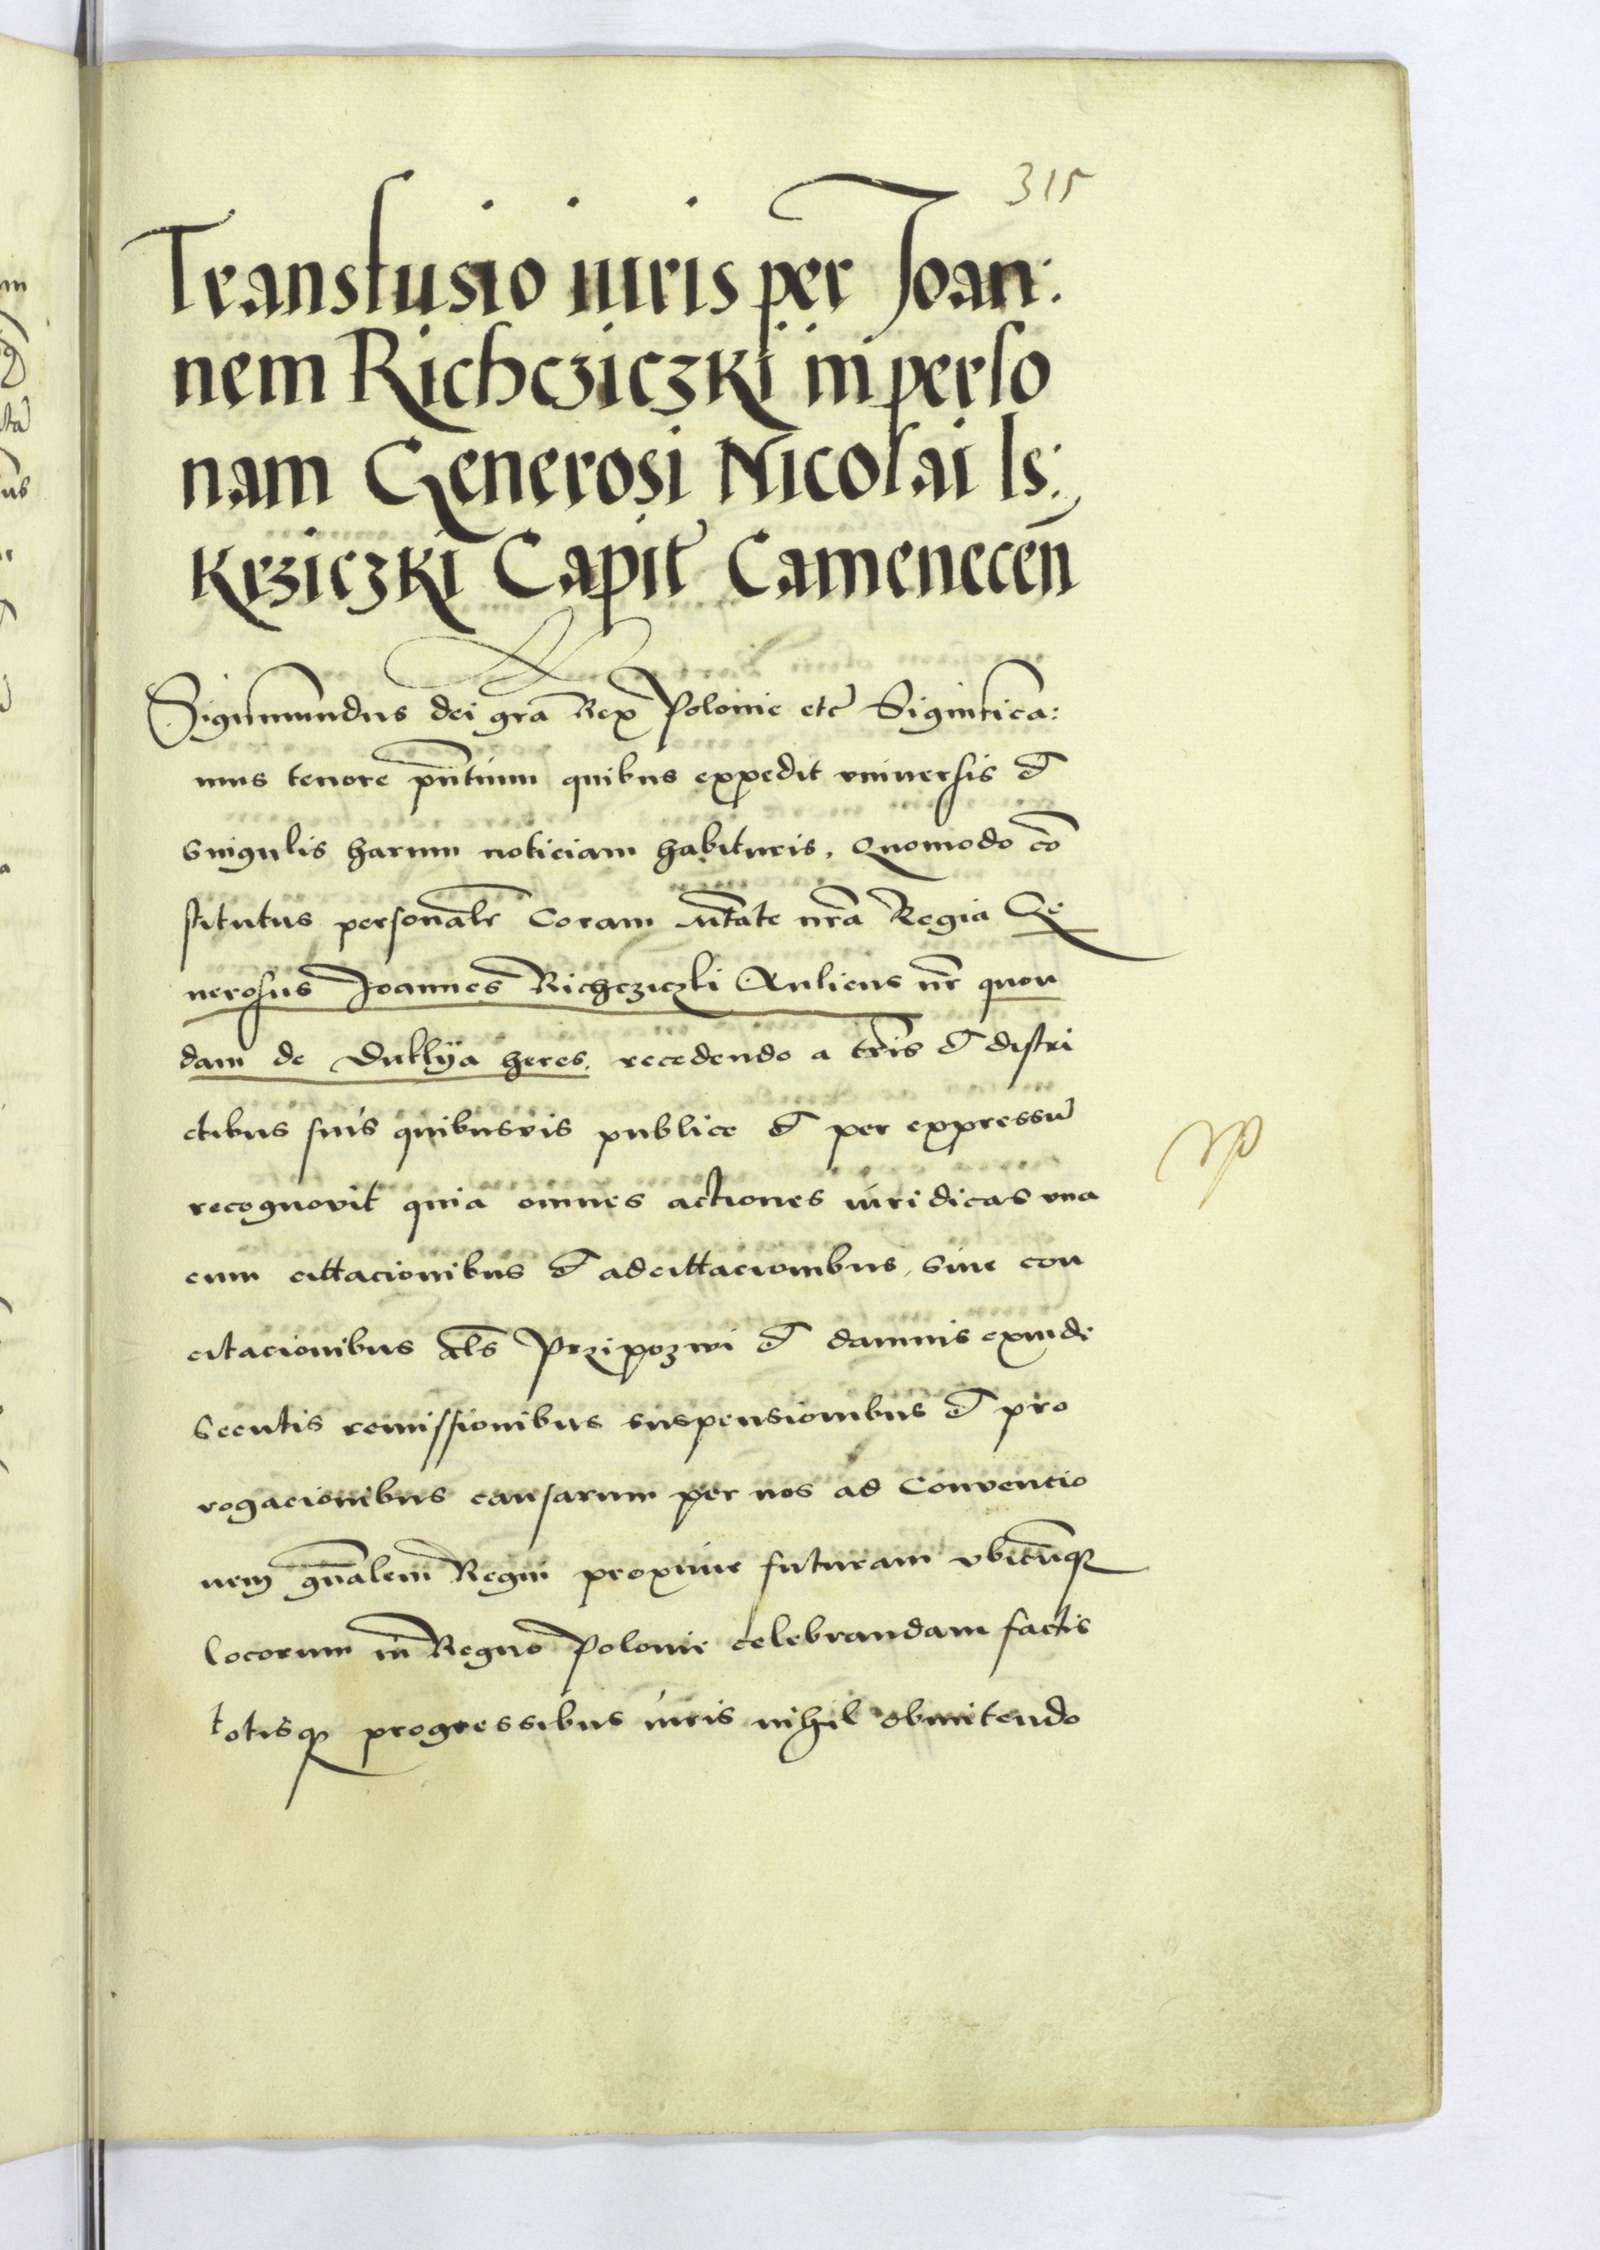 315
Transfusio iuris per Joan:
nem Richcziczki in perso
nam Generosi Nicolai Is:
krziczki Capit̃ Camenecen̄
Sigismundus dei gr̃a Rex Polonie etc̃ Significa:
mus tenore pn̄tium quibus expedit vniversis et
singulis harum noticiam habituris, Quomodo cō
stitutus personalr̃ Coram Mtate nr̃a Regia Ge
nerosus Joannes Richcziczki Aulicus nr̃ quon
dam de Duklÿa heres, recedendo a tr̃is et distri
ctibus suis quibusvis publice et per expressū
recognovit quia omnes actiones iuridicas vna
cum cittacionibus et adcittacionibus, sine con
citacionibus als̄ Przipozwi et damnis exinde
secutis remissionibus suspensionibus et pro
rogacionibus causarum per nos ad Conventio
nem gn̄alem Regni proxime futuram vbicūq3
locorum in Regno Polonie celebrandam factis
totisq3 progressibus iuris nihil obmitendo